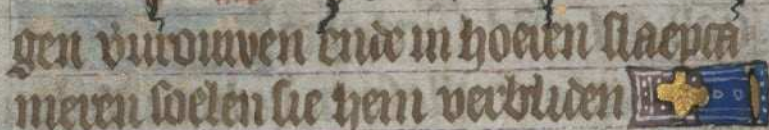 gen vurouwen ende in hoeren slaepca
meren soelen sie hem verbliden